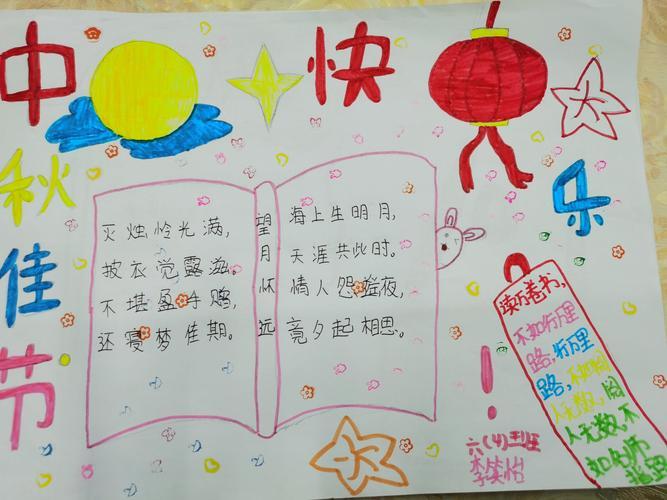 中
秋
佳
节
快
乐
!
望月怀远
海上生明月,
天涯共此时。
情人怨遥夜,
竟夕起相思。
灭烛怜光满,
披衣觉露滋。
不堪盈手赠,
还寝梦佳期。
读万卷书,
不如行万里
路,行万里
路,不如阅
人无数,阅
人无数,不
如名师
六(4)班
李笑怡